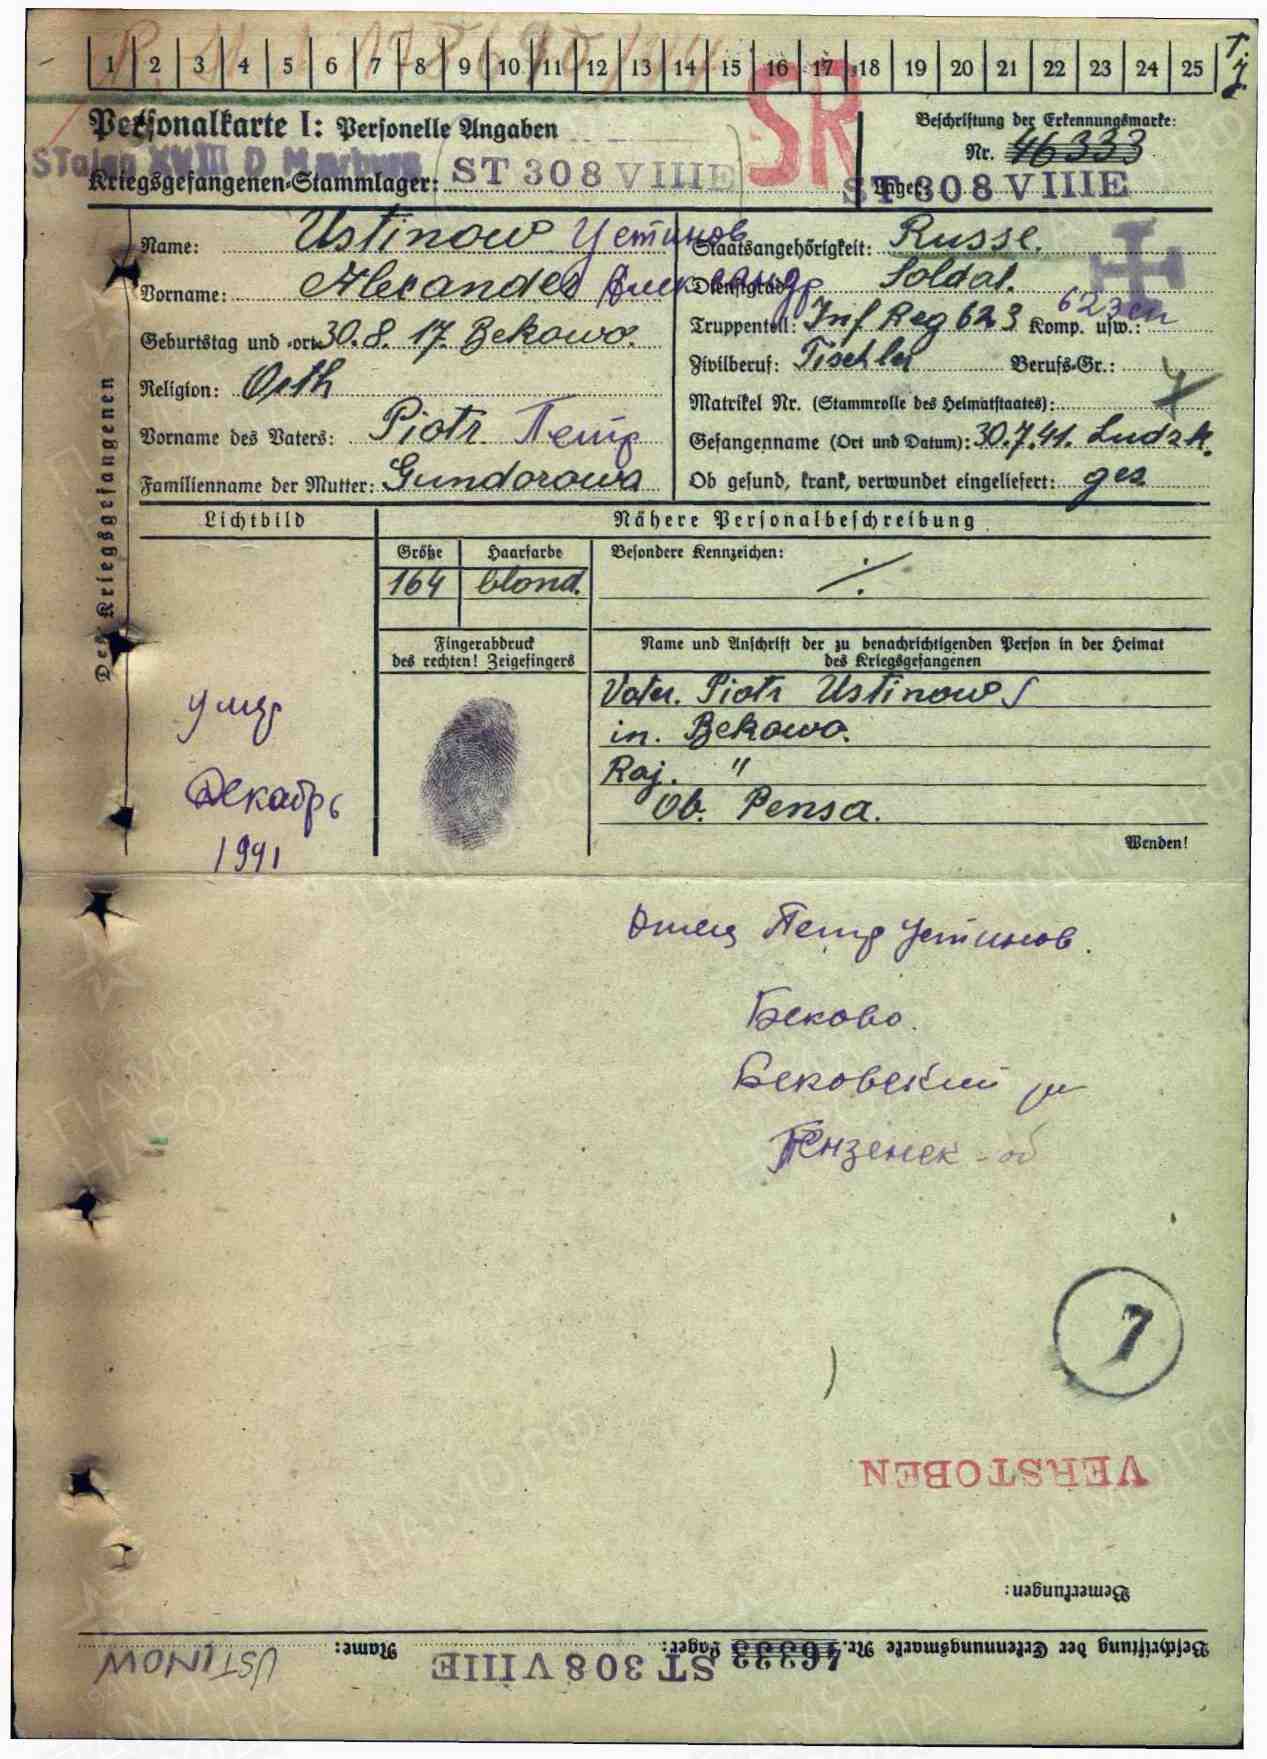 1 2 3 4 5 6 7 8 9 10 11 12 13 14 15 16 17 18 19 20 21 22 23 24 25
Personalkarte I: Personelle Angaben
SR
Beschriftung der Erkennungsmarke:
Nr. 46333
Stalag XVIII D Marburg
Kriegsgefangenen-Stammlager: ST 308 VIIIE
Lager: ST 308 VIIIE
Des Kriegsgefangenen
Name: Ustinow Устинов
Vorname: Alexander Александр
Geburtstag und -ort: 30.8.17. Bekowo.
Religion: Orth
Vorname des Vaters: Piotr Петр
Familienname der Mutter: Gundorowa
Staatsangehörigkeit: Russe.
Dienstgrad: Soldat.
Truppenteil: Inf Reg 623 Komp. usw.: 623 сп
Zivilberuf: Tischler Berufs-Gr.:
Matrikel Nr. (Stammrolle des Heimatstaates):
Gefangenname (Ort und Datum): 30.7.41. Ludzk.
Ob gesund, krank, verwundet eingeliefert: ges
Lichtbild
Nähere Personalbeschreibung
Größe Haarfarbe Besondere Kennzeichen:
164 blond. ./.
Fingerabdruck
des rechten! Zeigefingers
Name und Anschrift der zu benachrichtigenden Person in der Heimat
des Kriegsgefangenen
Vater. Piotr Ustinow
in. Bekowo.
Raj. "
Ob. Pensa.
Wenden!
умер
Декабрь
1941
Отец Петр Устинов.
Беково.
Бековский
Пензенск-об
7
VERSTOBEN
Bemerkungen:
Beschriftung der Erkennungsmarke Nr. 46333 Lager: ST 308 VIIIE Name: USTINOW